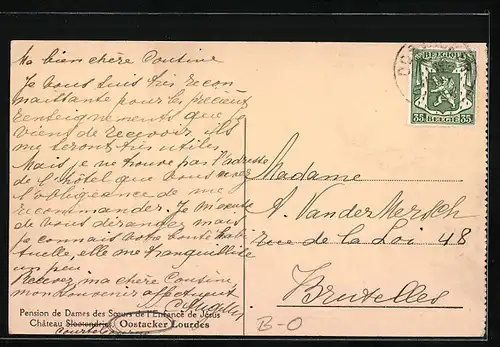 Ma bien chère Cousine
Je vous suis très recon
naissante pour les précieux
renseignements que je
viens de recevoir, ils
me seront très utiles
Mais, je ne trouve pas l'adresse
de l'hôtel que vous avez
l'obligeance de me
recommander. Je m'excuse
de vous déranger mais
je connais votre bonté habi
tuelle, elle me tranquillise
un peu
Recevez, ma chère Cousine,
mon souvenir affectueux
Pension de Dames des Sœurs de l'Enfance de Jésus
Château Slootendries Oostacker Lourdes
BELGIQUE
35 BELGIE 35
Madame
A. VanderMersch
rue de la Loi 48
Bruxelles
B-O